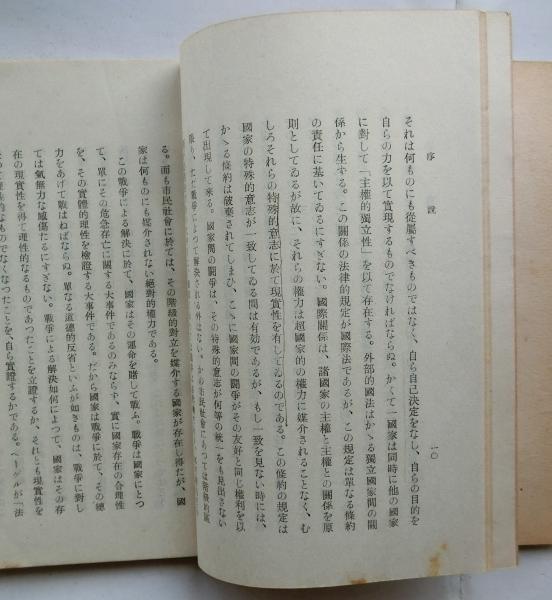 序 說
一〇
それは何ものにも從屬すべきものではなく、自ら自己決定をなし、自らの目的を
自らの力を以て實現するものでなければならぬ。かくて一國家は同時に他の國家
に對して「主權的獨立性」を以て存在する。外部的國法はかゝる獨立國家間の關
係から生ずる。この關係の法律的規定が國際法であるが、この規定は單なる條約
の責任に基いてゐるにすぎない。國際關係は、諸國家の主權と主權との關係を原
則としてゐるが故に、それらの權力は超國家的の權力に媒介されることなく、む
しろそれらの特殊的意志に於て現實性を有してゐるのである。この條約の規定は
國家の特殊的意志が一致してゐる間は有効であるが、もし一致を見ない時には、
かゝる條約は破棄されてしまひ、こゝに國家間の闘爭がその友好と同じ權利を以
て出現して來る。國家間の闘爭は、その特殊的意志が何等の統一をも見出さない
限り、たゞ戰爭によつて解決される外はない。かの市民社會にもつては階級的
る。而も市民社會に於ては、その階級的對立を媒介する國家が存在し得たが、國
家は何ものにも媒介されない絕對的權力である。
この戰爭による解決に於て、國家はその運命を賭して戰ふ。戰爭は國家にとつ
て、單にその危急存亡に關する大事件であるのみならず、實に國家存在の合理性
を、その實體的理性を檢證する大事件である。だから國家は戰爭に於て、その總
力をあげて戰はねばならぬ。單なる道德的反省といふが如きものは、戰爭に對し
ては氣無力な感傷たるにすぎない。戰爭による解決如何によつて、國家はその存
在の現實性を得て理性的なるものであつたことを立證するか、それとも現實性を
理性的なものでなくなつたことを、自ら實證するかである。ヘーゲルが「法